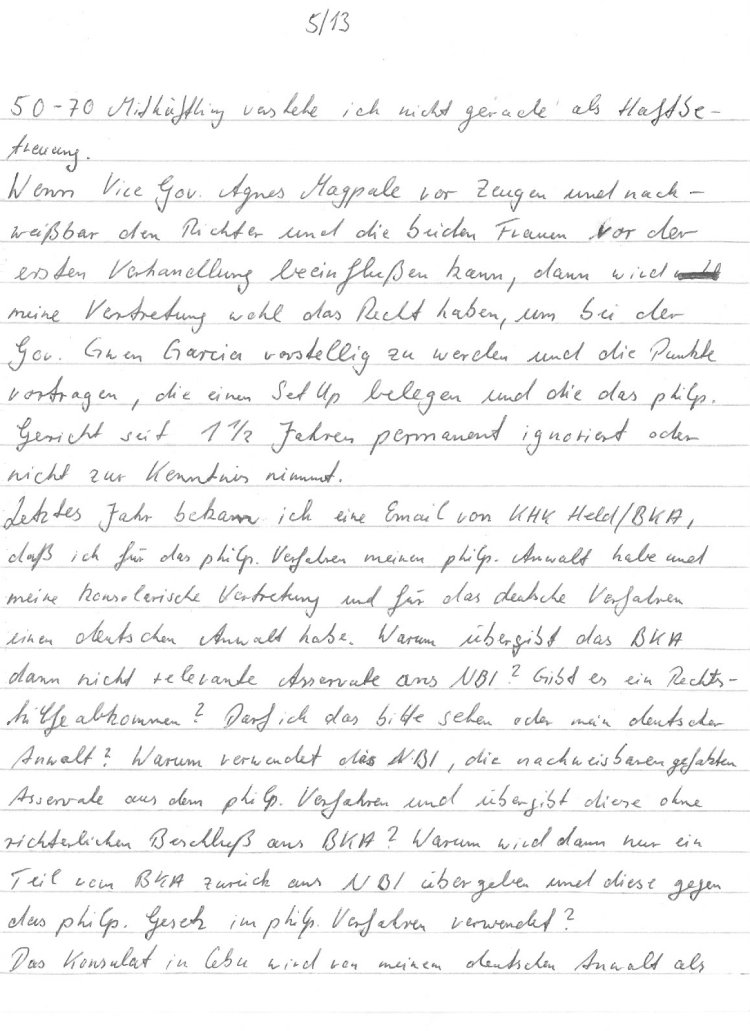 5/13
50-70 Mithäftling verstehe ich nicht gerade als Haftbe-
treuung.
Wenn Vice Gov. Agnes Magpale vor Zeugen und nach-
weißbar den Richter und die beiden Frauen vor der
ersten Verhandlung beeinflußen kann, dann wird
meine Vertretung wohl das Recht haben, um bei der
Gov. Gwen Garcia vorstellig zu werden und die Punkte
vortragen, die einen Set Up belegen und die das philp.
Gericht seit 1 1/2 Jahren permanent ignoriert oder
nicht zur Kenntnis nimmt.
Letztes Jahr bekam ich eine Email von KHK Held/BKA,
daß ich für das philp. Verfahren meinen philp. Anwalt habe und
meine konsolarische Vertretung und für das deutsche Verfahren
einen deutschen Anwalt habe. Warum übergibt das BKA
dann nicht relevante Asservate ans NBI? Gibt es ein Rechts-
hilfeabkommen? Darf ich das bitte sehen oder mein deutscher
Anwalt? Warum verwendet das NBI, die nachweisbaren gefakten
Asservate aus dem philp. Verfahren und übergibt diese ohne
richterlichen Beschluß ans BKA? Warum wird dann nur ein
Teil vom BKA zurück ans NBI übergeben und diese gegen
das philp. Gesetz im philp. Verfahren verwendet?
Das Konsulat in Cebu wird von meinem deutschen Anwalt als